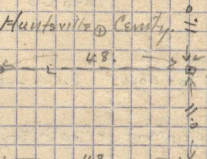 Huntsville Cemty.
48.
11.0
48